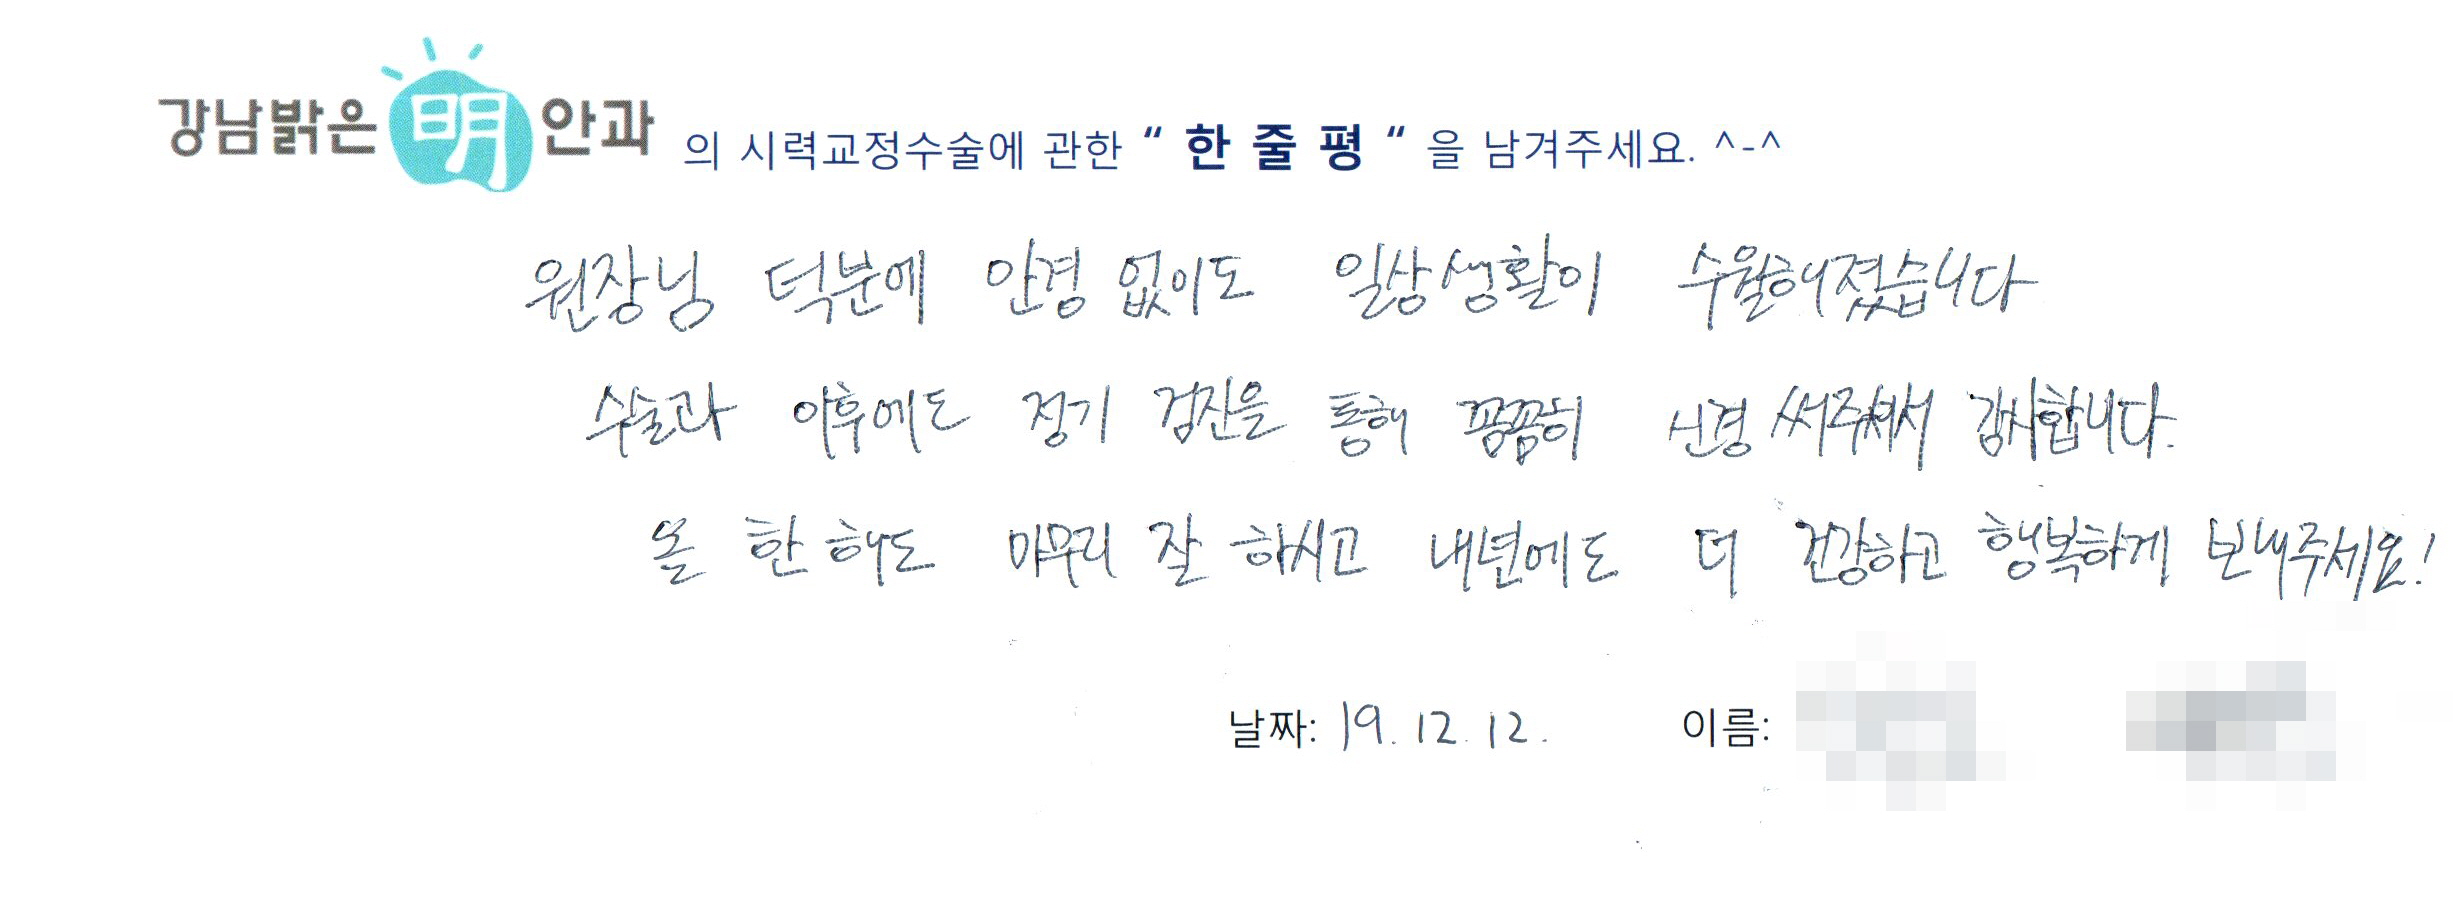 강남밝은 明 안과 의 시력교정수술에 관한 “ 한 줄 평 “ 을 남겨주세요. ^-^
원장님 덕분에 안경 없이도 일상생활이 수월해졌습니다
수술과 이후에도 정기 검진을 통해 꼼꼼히 신경 써주셔서 감사합니다.
올 한 해도 마무리 잘 하시고 내년에도 더 건강하고 행복하게 보내주세요!
날짜: 19. 12. 12. 이름: